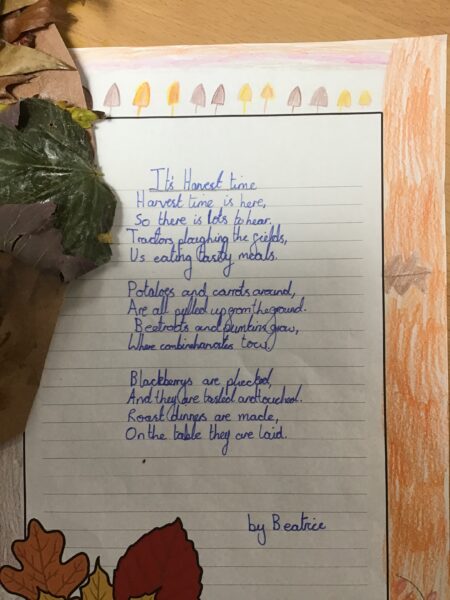 It's Harvest time
Harvest time is here,
So there is lots to hear.
Tractors ploughing the fields,
Us eating tasty meals.
Potatoes and carrots around,
Are all pulled up from the ground.
Beetroots and pumkins grow,
Where combine harvates tow.
Blackberrys are plucked,
And they are tasted and touched.
Roast dinners are made,
On the table they are laid.
by Beatrice